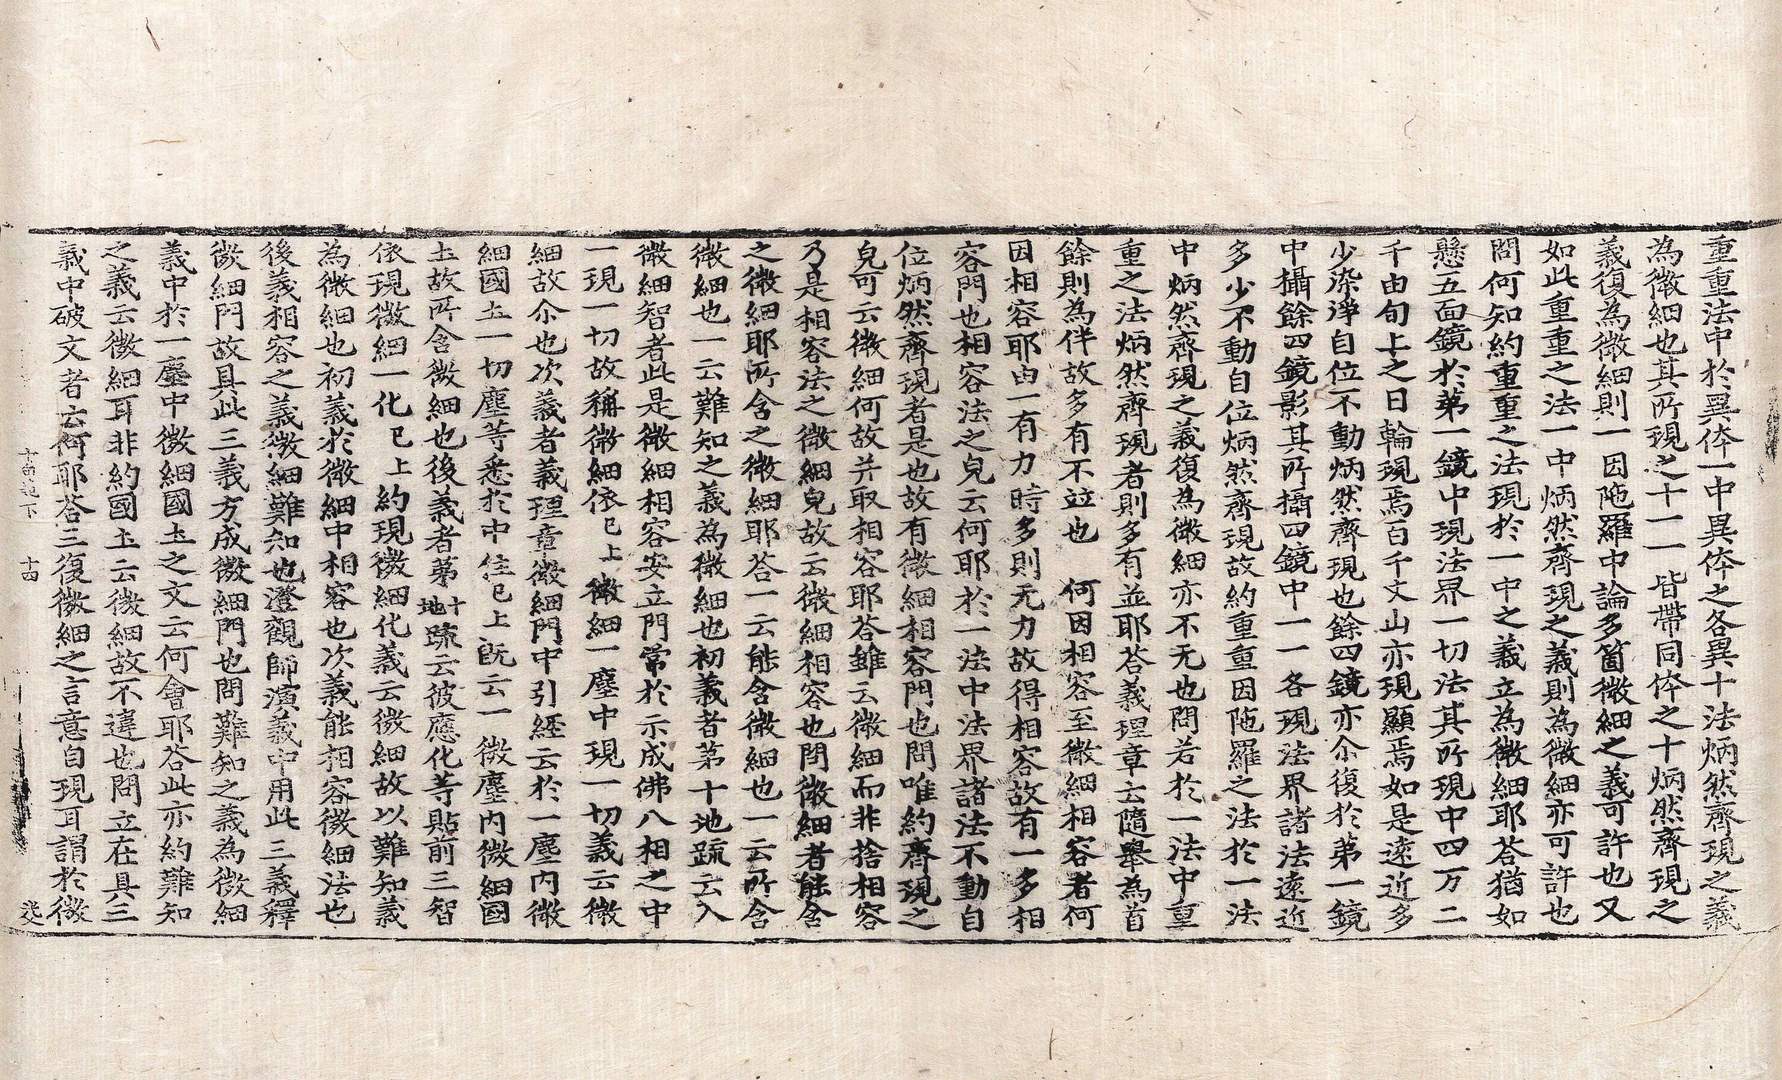 重重法中於異体一中異体之各異十法炳然齊現之義
為微細也其所現之十一一皆帶同体之十炳然齊現之
義復為微細則一因陁羅中論多箇微細之義可許也又
如此重重之法一中炳然齊現之義則為微細亦可許也
問何知約重重之法現於一中之義立為微細耶荅猶如
懸五面鏡於第一鏡中現法界一切法其所現中四万二
千由旬上之日輪現焉百千丈山亦現顯焉如是遠近多
少染淨自位不動炳然齊現也餘四鏡亦尒復於第一鏡
中攝餘四鏡影其所攝四鏡中一一各現法界諸法遠近
多少不動自位炳然齊現故約重重因陁羅之法於一法
中炳然齊現之義復為微細亦不无也問若於一法中重
重之法炳然齊現者則多有並耶荅義理章云隨舉為首
餘則為伴故多有不竝也　何因相容至微細相容者何
因相容耶由一有力時多則无力故得相容故有一多相
容門也相容法之皃云何耶於一法中法界諸法不動自
位炳然齊現者是也故有微細相容門也問唯約齊現之
皃可云微細何故并取相容耶荅雖云微細而非捨相容
乃是相容法之微細皃故云微細相容也問微細者能含
之微細耶所含之微細耶荅一云能含微細也一云所含
微細也一云難知之義為微細也初義者第十地疏云入
微細智者此是微細相容安立門常於示成佛八相之中
一現一切故稱微細依已上微細一塵中現一切義云微
細故尒也次義者義理章微細門中引經云於一塵內微
細國土一切塵等悉於中住已上旣云一微塵內微細國
土故所含微細也後義者第十地疏云彼應化等貼前三智
依現微細一化已上約現微細化義云微細故以難知義
為微細也初義於微細中相容也次義能相容微細法也
後義相容之義微細難知也澄觀師演義中用此三義釋
微細門故具此三義方成微細門也問難知之義為微細
義中於一塵中微細國土之文云何會耶荅此亦約難知
之義云微細耳非約國土云微細故不違也問立在具三
義中破文者云何耶荅三復微細之言意自現耳謂於微
十四